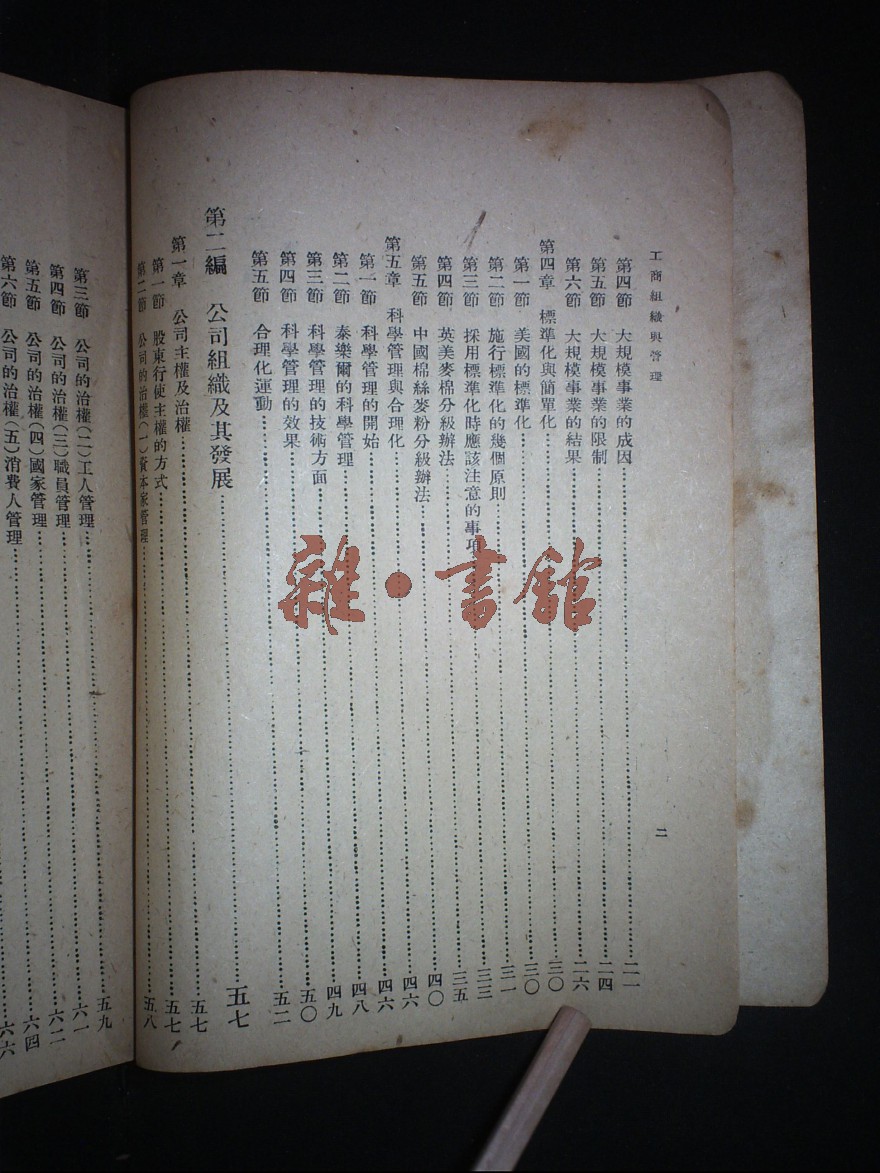 工商組織與管理
二
第四節 大規模事業的成因……二一
第五節 大規模事業的限制……二四
第六節 大規模事業的結果……二六
第四章 標準化與簡單化……三〇
第一節 美國的標準化……三〇
第二節 施行標準化的幾個原則……三一
第三節 採用標準化時應該注意的事項……三三
第四節 英美麥棉分級辦法……三五
第五節 中國棉絲麥粉分級辦法……四〇
第五章 科學管理與合理化……四六
第一節 科學管理的開始……四六
第二節 泰樂爾的科學管理……四八
第三節 科學管理的技術方面……四九
第四節 科學管理的效果……五〇
第五節 合理化運動……五二
第二編 公司組織及其發展……五七
第一章 公司主權及治權……五七
第一節 股東行使主權的方式……五七
第二節 公司的治權(一)資本家管理……五八
第三節 公司的治權(二)工人管理……五九
第四節 公司的治權(三)職員管理……六一
第五節 公司的治權(四)國家管理……六二
第六節 公司的治權(五)消費人管理……六四
六六
雜·書館